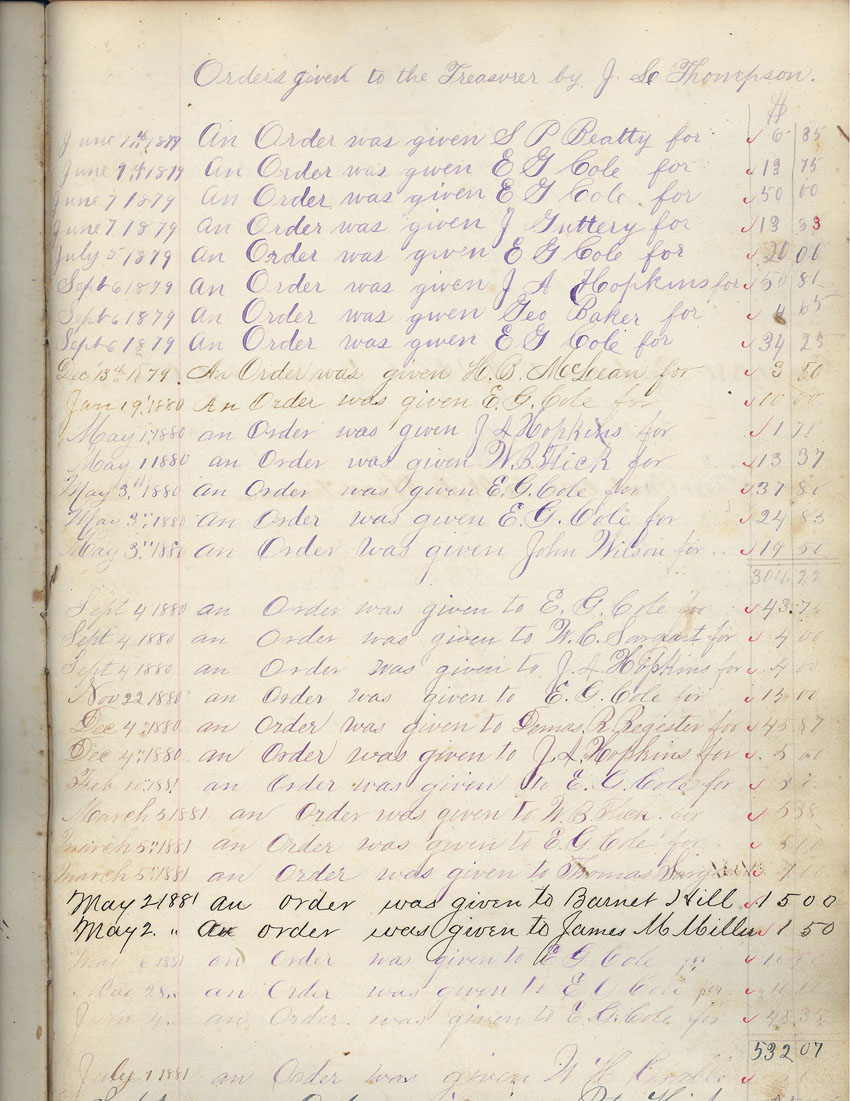 Orders given to the Treasurer by J. Thompson.
$
June 7th 1879 An Order was given S P Beatty for 6 35
June 7th 1879 An Order was given E G Cole for 13 75
June 7 1879 An Order was given E G Cole for 50 00
June 7 1879 An Order was given J Guttery for 13 33
July 5 1879 An Order was given E G Cole for 20 00
Sept 6 1879 An Order was given J A Hopkins for 50 81
Sept 6 1879 An Order was given Geo Baker for 4 65
Sept 6 1879 An Order was given E G Cole for 34 25
Dec 13th 1879. An Order was given H. B. McLean for 3 50
Jan 19, 1880 An Order was given E. G. Cole for 10 00
May 1, 1880 an Order was given J A Hopkins for 1
May 1 1880 an Order was given W. B. Flick for 13 37
May 3, 1880 an Order was given E. G. Cole for 37 80
May 3, 1880 an Order was given E. G. Cole for 24 83
May 3, 1880 an Order was given John Wilson for 19 50
304.22
Sept 4 1880 an Order was given to E. G. Cole for 43.
Sept 4, 1880 an Order was given to W. C. for 4 00
Sept 4 1880 an Order was given to J. A. Hopkins for 4 00
Nov 22 1880 an Order was given to E. G. Cole for 00
Dec 4, 1880 an Order was given to R. Register for 45 87
Dec 4, 1880 an Order was given to J. A. Hopkins for 5 00
Feb 1881 an Order was given to E. G. Cole for
March 5 1881. an Order was given to W. B. Flick for
March 5, 1881 an Order was given to E. G. Cole for
March 5, 1881 an Order was given to Thomas
May 2 1881 an order was given to Barnet Hill 15 00
May 2. " an order was given to James M Miller 1 50
6 1881 an Order was given to E G Cole for
28 " an Order was given to E G Cole for
June 4. an Order was given to E. G. Cole for
532 07
July 1 1881 an Order was given W H